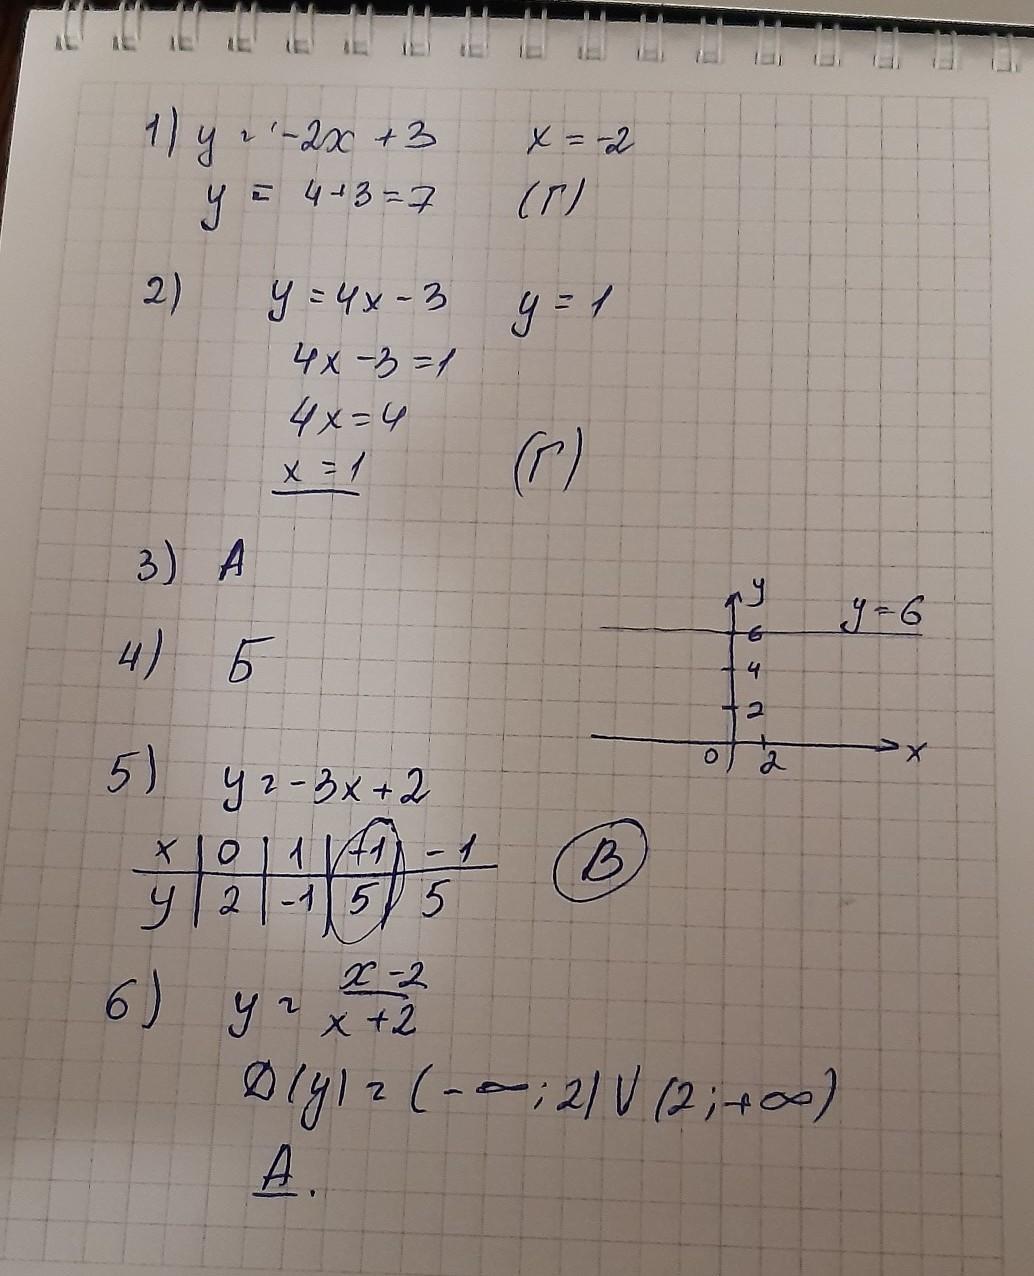 1) y = -2x + 3 x = -2
y = 4+3=7 (Г)
2) y = 4x - 3 y = 1
4x - 3 = 1
4x = 4
x = 1 (Г)
3) А
y
y = 6
6
4) Б
4
2
0 2 x
5) y = -3x + 2
x | 0 | 1 | -1 | -1
y | 2 | -1 | 5 | 5
В
6) y = x - 2
x + 2
D(y) = (-∞; 2) V (2; +∞)
А.